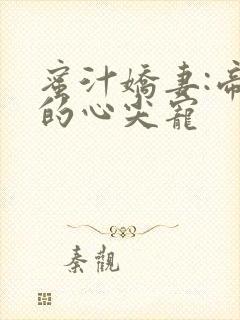 蜜汁嬌妻:帝
的心尖寵
秦觀